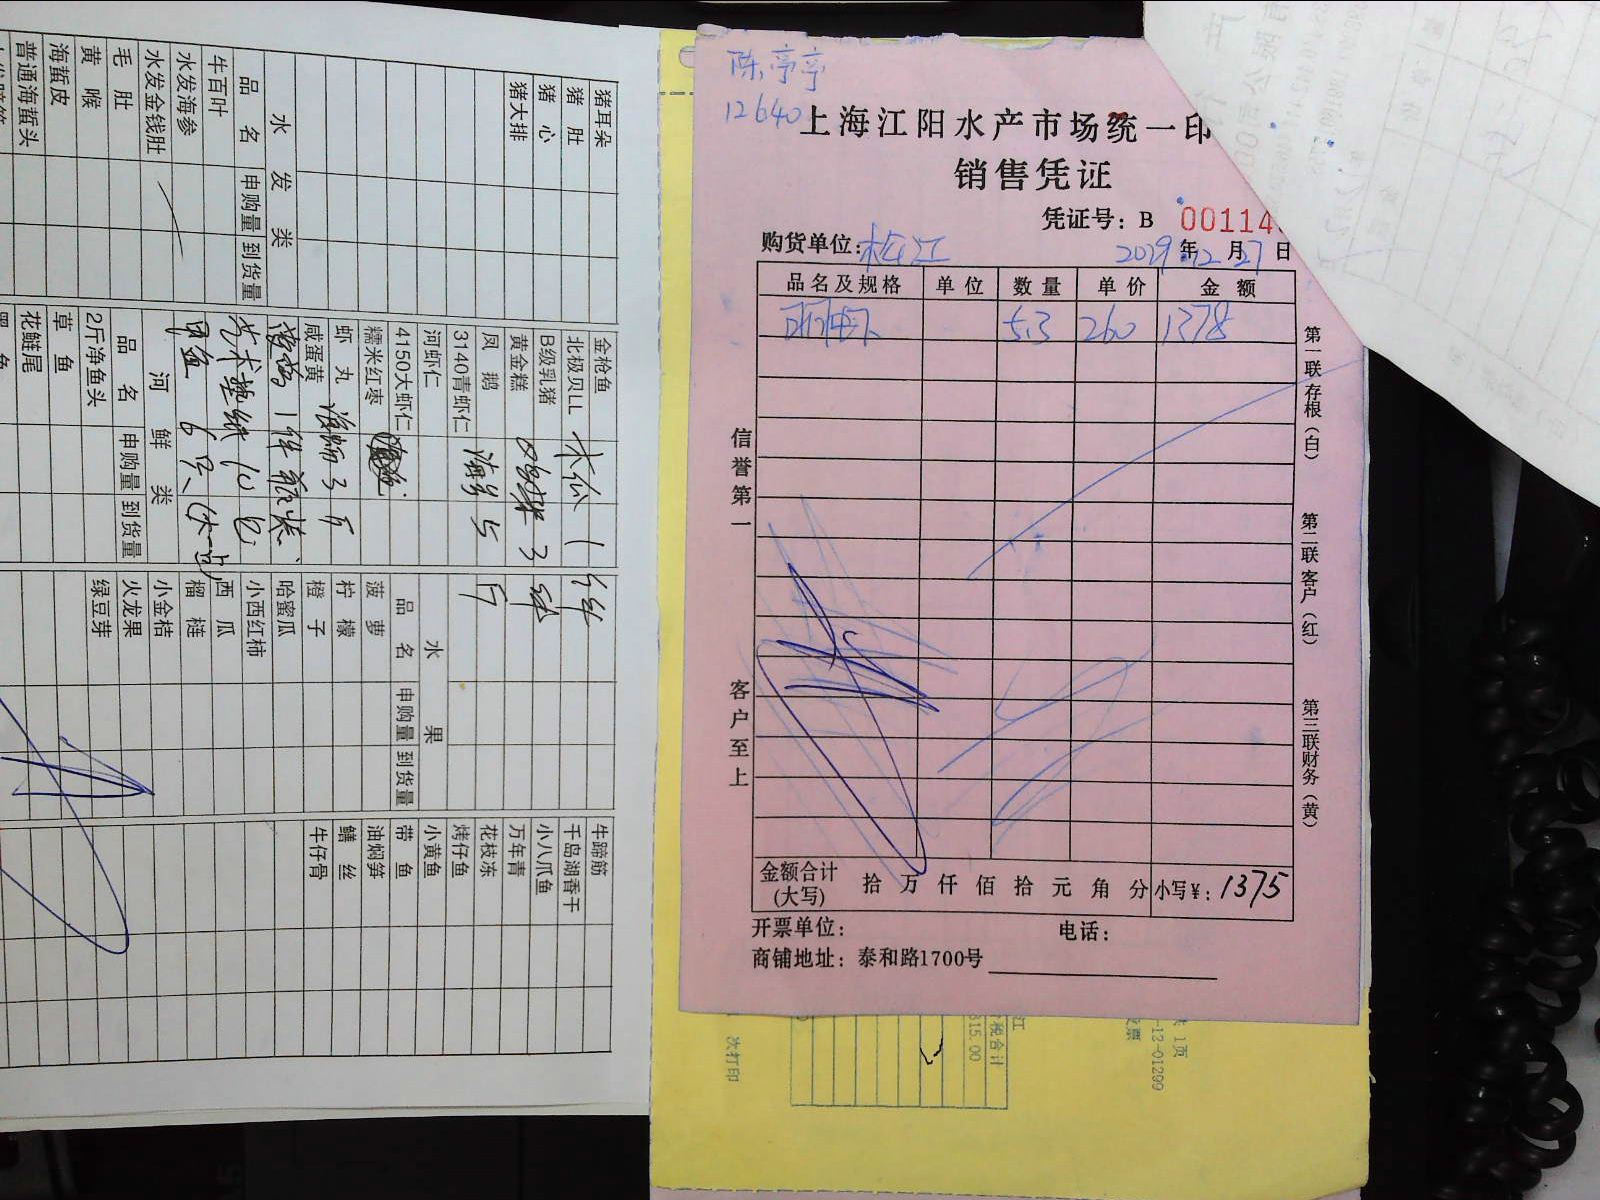 陈亭亭
12640
上海江阳水产市场统一印
销售凭证
凭证号：B 00114
购货单位：松江
2029年12月27日
品名及规格 单位 数量 单价 金额
5.3 260 1378
信誉第一
客户至上
第一联存根（白）
第二联客户（红）
第三联财务（黄）
金额合计(大写) 拾 万 仟 佰 拾 元 角 分 小写￥：1375
开票单位： 电话：
商铺地址：泰和路1700号
共1页
-12-01299
发票
江
价税合计
315.00
次打印
猪耳朵
猪肚
猪心
猪大排
水发类
品名 申购量 到货量
牛百叶
水发海参
水发金钱肚
毛肚
黄喉
海蜇皮
普通海蜇头
金枪鱼
北极贝LL 木瓜 1件
B级乳猪
黄金糕
凤鹅
3140青虾仁
河虾仁
4150大虾仁
糯米红枣
虾丸
咸蛋黄
河鲜类
品名 申购量 到货量
2斤净鱼头
草鱼
花鲢尾
甲鱼 6只(大一点)
艺术垫纸 10包
水果
品名 申购量 到货量
菠萝
柠檬
橙子
哈蜜瓜
小西红柿
西瓜
榴梿
小金桔
火龙果
绿豆芽
牛蹄筋
千岛湖香干
小八爪鱼
万年青
花枝冻
烤仔鱼
小黄鱼
带鱼
油焖笋
鳝丝
牛仔骨